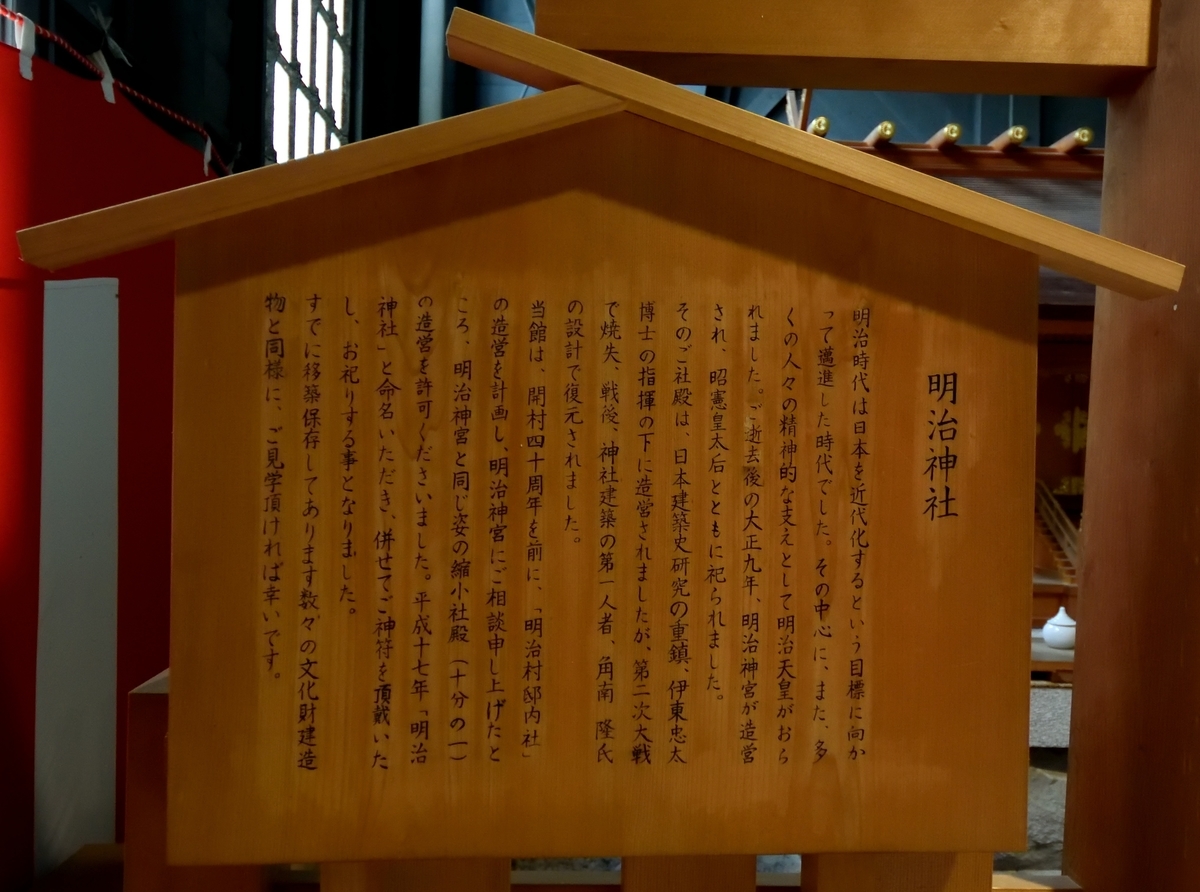 明治神社
明治時代は日本を近代化するという目標に向か
って邁進した時代でした。その中心に、また、多
くの人々の精神的な支えとして明治天皇がおら
れました。ご逝去後の大正九年、明治神宮が造営
され、昭憲皇太后とともに祀られました。
そのご社殿は、日本建築史研究の重鎮、伊東忠太
博士の指揮の下に造営されましたが、第二次大戦
で焼失、戦後、神社建築の第一人者、角南 隆氏
の設計で復元されました。
当館は、開村四十周年を前に、「明治村邸内社」
の造営を計画し、明治神宮にご相談申し上げたと
ころ、明治神宮と同じ姿の縮小社殿(十分の一)
の造営を許可くださいました。平成十七年「明治
神社」と命名いただき、併せてご神符を頂戴いた
し、お祀りする事となりました。
すでに移築保存してあります数々の文化財建造
物と同様に、ご見学頂ければ幸いです。